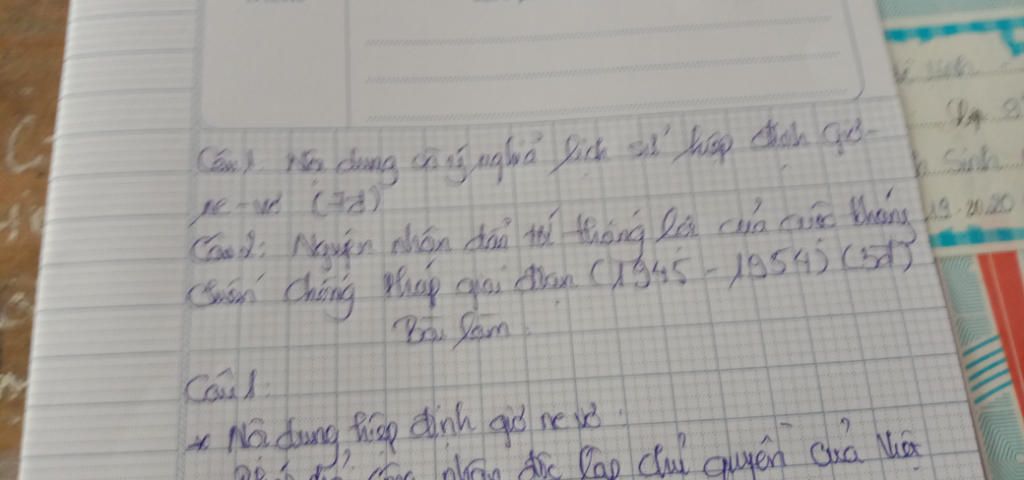 Câu 1. Nội dung và ý nghĩa lịch sử hiệp định Giơ-
ne-vơ (7đ)
Câu 2: Nguyên nhân dẫn tới thắng lợi của cuộc kháng
chiến chống Pháp giai đoạn (1945 - 1954) (3đ)
Bài làm.
Câu 1:
* Nội dung hiệp định giơ ne vơ:
công nhận độc lập chủ quyền của Việt
Sinh